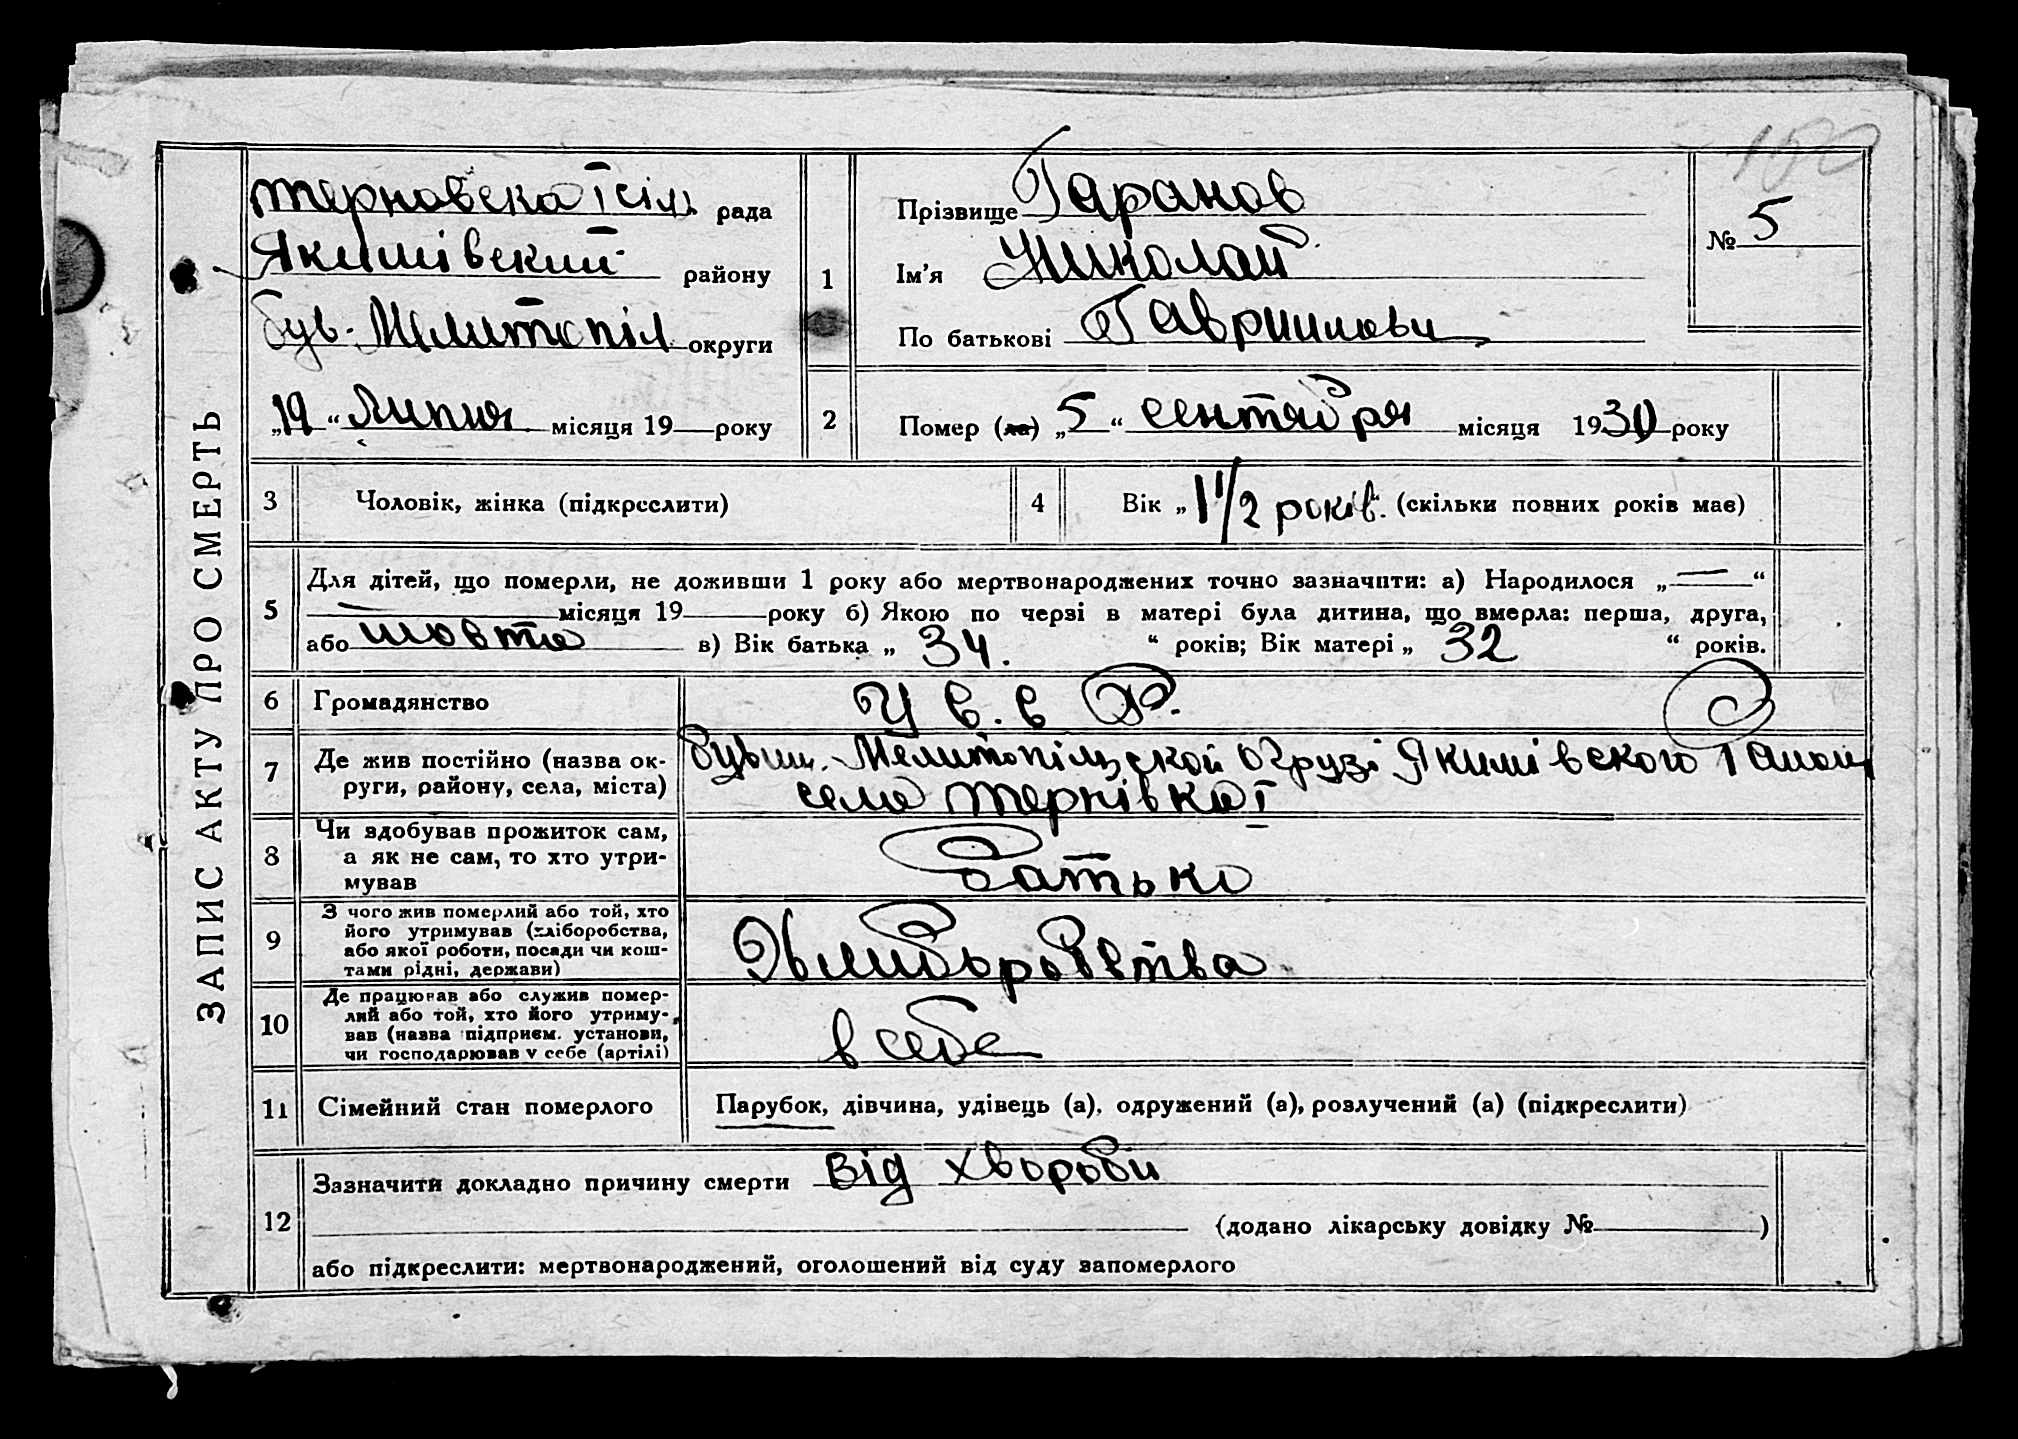 ЗАПИС АКТУ ПРО СМЕРТЬ
Терновска І сіл. рада
Якимівский району
був. Мелитопіл округи
„19“ Липня місяця 19 року
1
Прізвище Гаранов
Ім'я Николай
По батькові
№ 5
2
Помер (ла) „5“ сентября місяця 1930 року
3
Чоловік, жінка (підкреслити)
4
Вік „1 1/2 років“. (скільки повних років має)
5
Для дітей, що померли, не доживши 1 року або мертвонароджених точно зазначити: а) Народилося „—“
— місяця 19 року б) Якою по черзі в матері була дитина, що вмерла: перша, друга,
або шовта в) Вік батька „34.“ років; Вік матері „32“ років.
6
Громадянство
У С.С Р.
7
Де жив постійно (назва ок-
руги, району, села, міста)
Мелитопільской округі Якимівского
село Тернівка І
8
Чи здобував прожиток сам,
а як не сам, то хто утри-
мував
Батько
9
З чого жив померлий або той, хто
його утримував (хліборобства,
або якої роботи, посади чи кош-
тами рідні, держави)
Хлиборобства
10
Де працював або служив помер-
лий або той, хто його утриму-
вав (назва підприєм. установи,
чи господарював у себе (артілі)
в себе
11
Сімейний стан померлого
Парубок, дівчина, удівець (а), одружений (а), розлучений (а) (підкреслити)
12
Зазначити докладно причину смерти від хвороби
(додано лікарську довідку № )
або підкреслити: мертвонароджений, оголошений від суду запомерлого